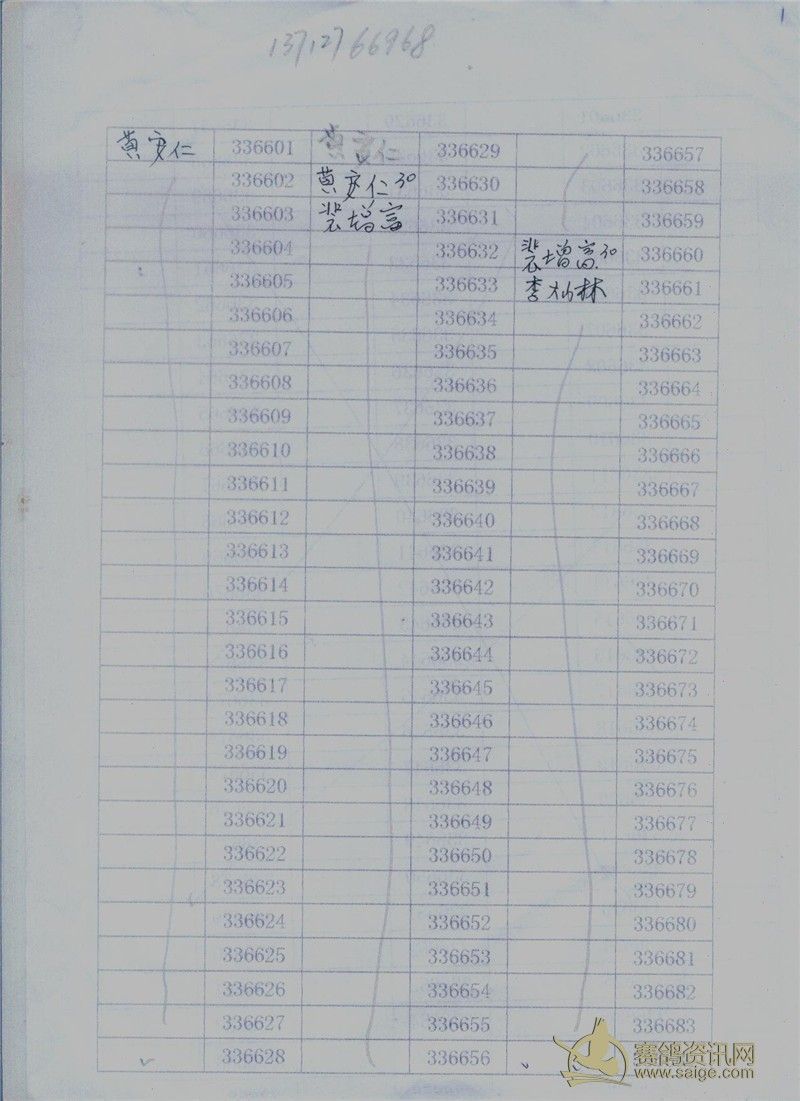 1
13712766968
黄安仁 336601 黄安仁 336629 336657
336602 黄安仁30 336630 336658
336603 裴增富 336631 336659
336604 336632 裴增富30 336660
336605 336633 李灿林 336661
336606 336634 336662
336607 336635 336663
336608 336636 336664
336609 336637 336665
336610 336638 336666
336611 336639 336667
336612 336640 336668
336613 336641 336669
336614 336642 336670
336615 336643 336671
336616 336644 336672
336617 336645 336673
336618 336646 336674
336619 336647 336675
336620 336648 336676
336621 336649 336677
336622 336650 336678
336623 336651 336679
336624 336652 336680
336625 336653 336681
336626 336654 336682
336627 336655 336683
336628 336656
赛鸽资讯网
www.saige.com